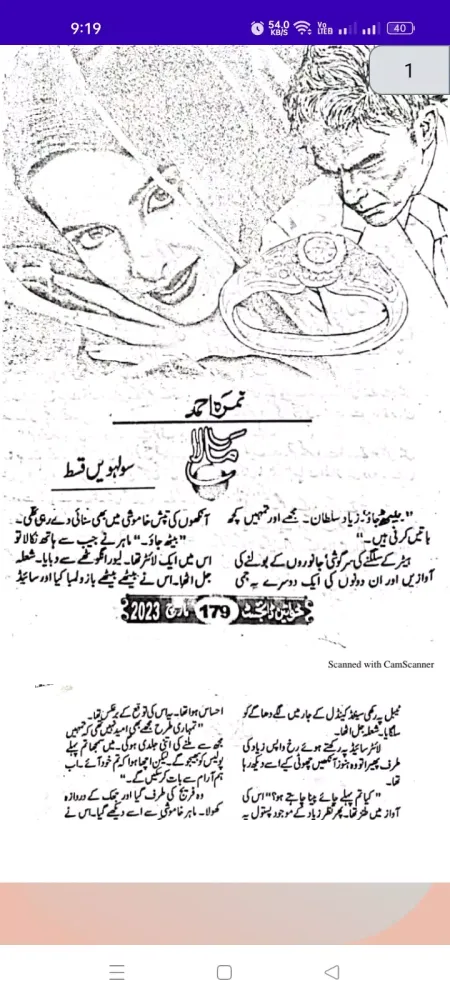 9:19
54.0
KB/S
Vo
LTE
40
1
نمرہ احمد
مالا
سولہویں قسط
"بیٹھ جاؤ۔ زیاد سلطان۔ مجھے اور تمہیں کچھ
باتیں کرنی ہیں۔"
ہیٹر کے سلگنے کی سرگوشی، جانوروں کے بولنے کی
آوازیں اور ان دونوں کی ایک دوسرے پہ جمی
آنکھوں کی تپش خاموشی میں بھی سنائی دے رہی تھی۔
"بیٹھ جاؤ۔" ماہر نے جیب سے ہاتھ نکالا تو
اس میں ایک لائٹر تھا۔ لیور انگوٹھے سے دبایا۔ شعلہ
جل اٹھا۔ اس نے بیٹھے بیٹھے بازو لمبا کیا اور سائیڈ
خواتین ڈائجسٹ 179 مارچ 2023
Scanned with CamScanner
ٹیبل پہ رکھی سینٹڈ کینڈل کے جار میں لگے دھاگے کو
سلگایا۔ شعلہ جل اٹھا۔
لائٹر سائیڈ پہ رکھتے ہوئے رخ واپس زیاد کی
طرف پھیرا تو وہ ہنوز آنکھیں چھوٹی کیے اسے دیکھ رہا
تھا۔
"کیا تم پہلے چائے پینا چاہتے ہو؟" اس کی
آواز میں طنز تھا۔ پھر نظر زیاد کے موجود پستول پہ
احساس ہوا تھا۔ یہ اس کی توقع کے برعکس تھا۔
"تمہاری طرح مجھے بھی امید نہیں تھی کہ تمہیں
مجھ سے ملنے کی اتنی جلدی ہوگی۔ میں سمجھا تم پہلے
پولیس کو بھیجو گے۔ لیکن اچھا ہوا کہ تم خود آئے۔ اب
ہم آرام سے بات کر سکیں گے۔"
وہ فریج کی طرف گیا اور جھک کے دروازہ
کھولا۔ ماہر خاموشی سے اسے دیکھے گیا۔ اس نے